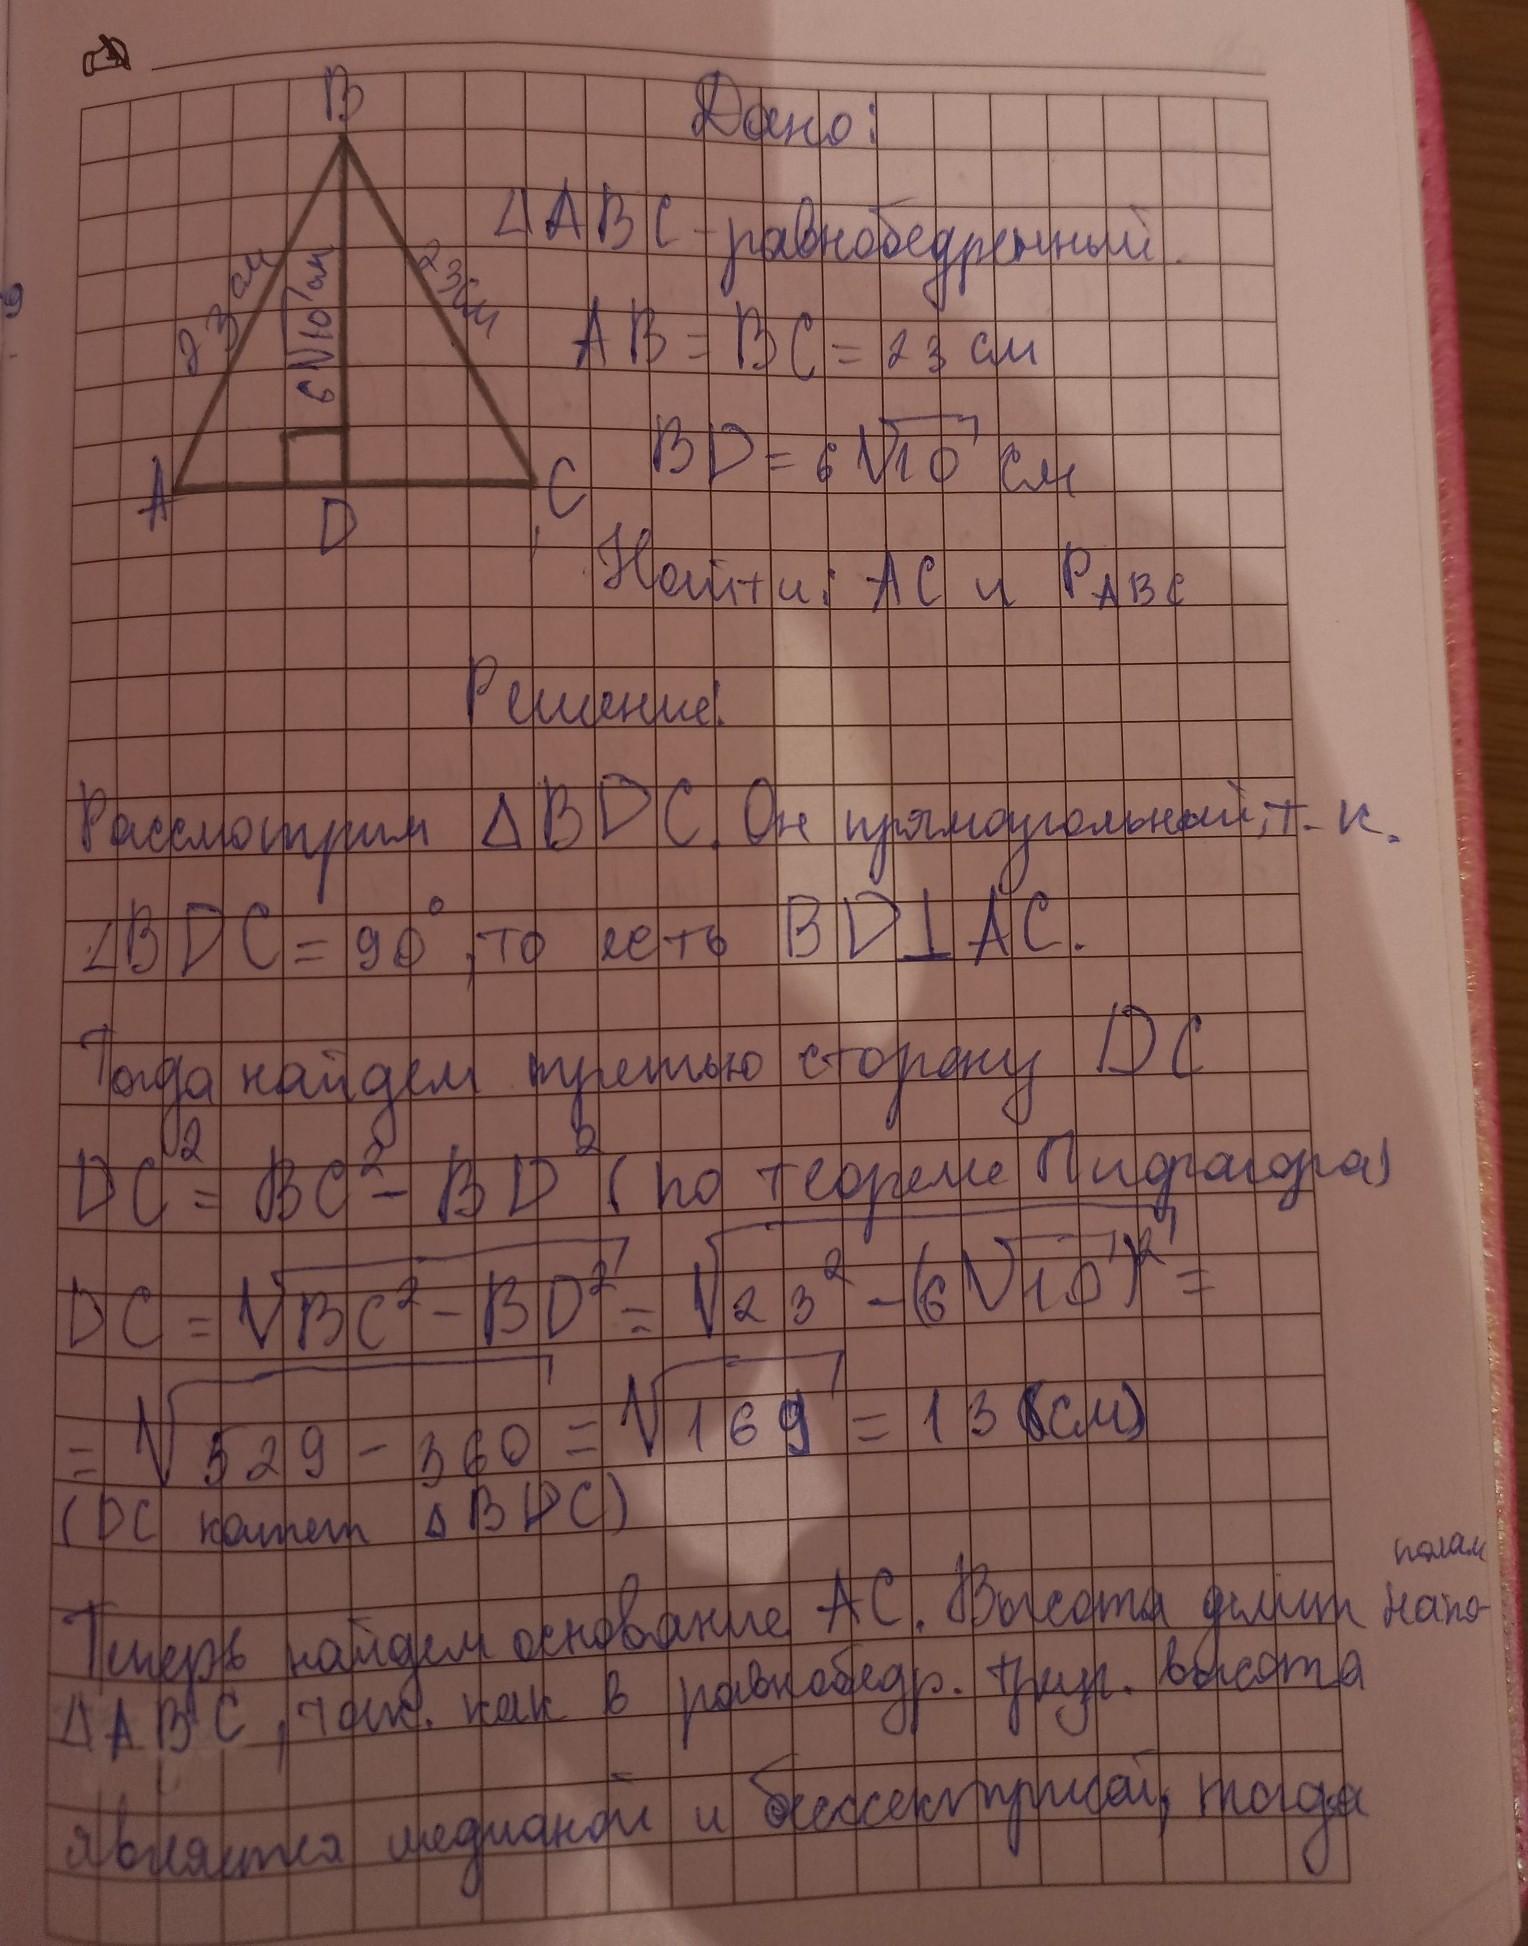 B
Дано:
ΔABC - равнобедренный.
23 см
6√10 см
23 см
AB = BC = 23 см
BD = 6√10 см
A
D
C
Найти: AC и PABC
Решение:
Рассмотрим ΔBDC. Он прямоугольный, т. к.
∠BDC = 90°, то есть BD⊥AC.
Тогда найдем третью сторону DC
DC² = BC² - BD² (по теореме Пифагора)
DC = √BC² - BD² = √23² - (6√10)² =
= √529 - 360 = √169 = 13 (см)
(DC катет ΔBDC)
полам
Теперь найдем основание AC. Высота делит напо-
ΔABC, так. как в равнобедр. треуг. высота
является медианой и биссектрисой, тогда